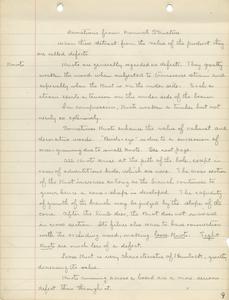 Deviations from Normal Structure
When these detract from the value of the product they
are called defects.
Knots
Knots are generally regarded as defects. They greatly
weaken the wood when subjected to transverse strain and
especially when the knot is on the under side. Such a
strain exerts a tension on the under side of the beam.
In compression, knots weaken a timber but not
nearly so extensively.
Sometimes knots enhance the value of natural and
decorative woods. "Birds-eye" is due to a succession of
small knots. See next page.
All knots arise at the pith of the body, except in
case of adventitious buds, which are rare. The cross section
of the knot increases as long as the branch continues to
grow; hence a cone shape is developed. The rapidity
of growth of the branch may be judged by the slope of the
cone. After the limb dies, the knot does not increase
in cross section. Its fibers also cease to have connection
with the wood, making loose knots. Tight
knots are much less of a defect.
Loose knot is very characteristic of Hemlock, greatly
decreasing its value.
Knots running across a board are a more serious
defect than through it.
9